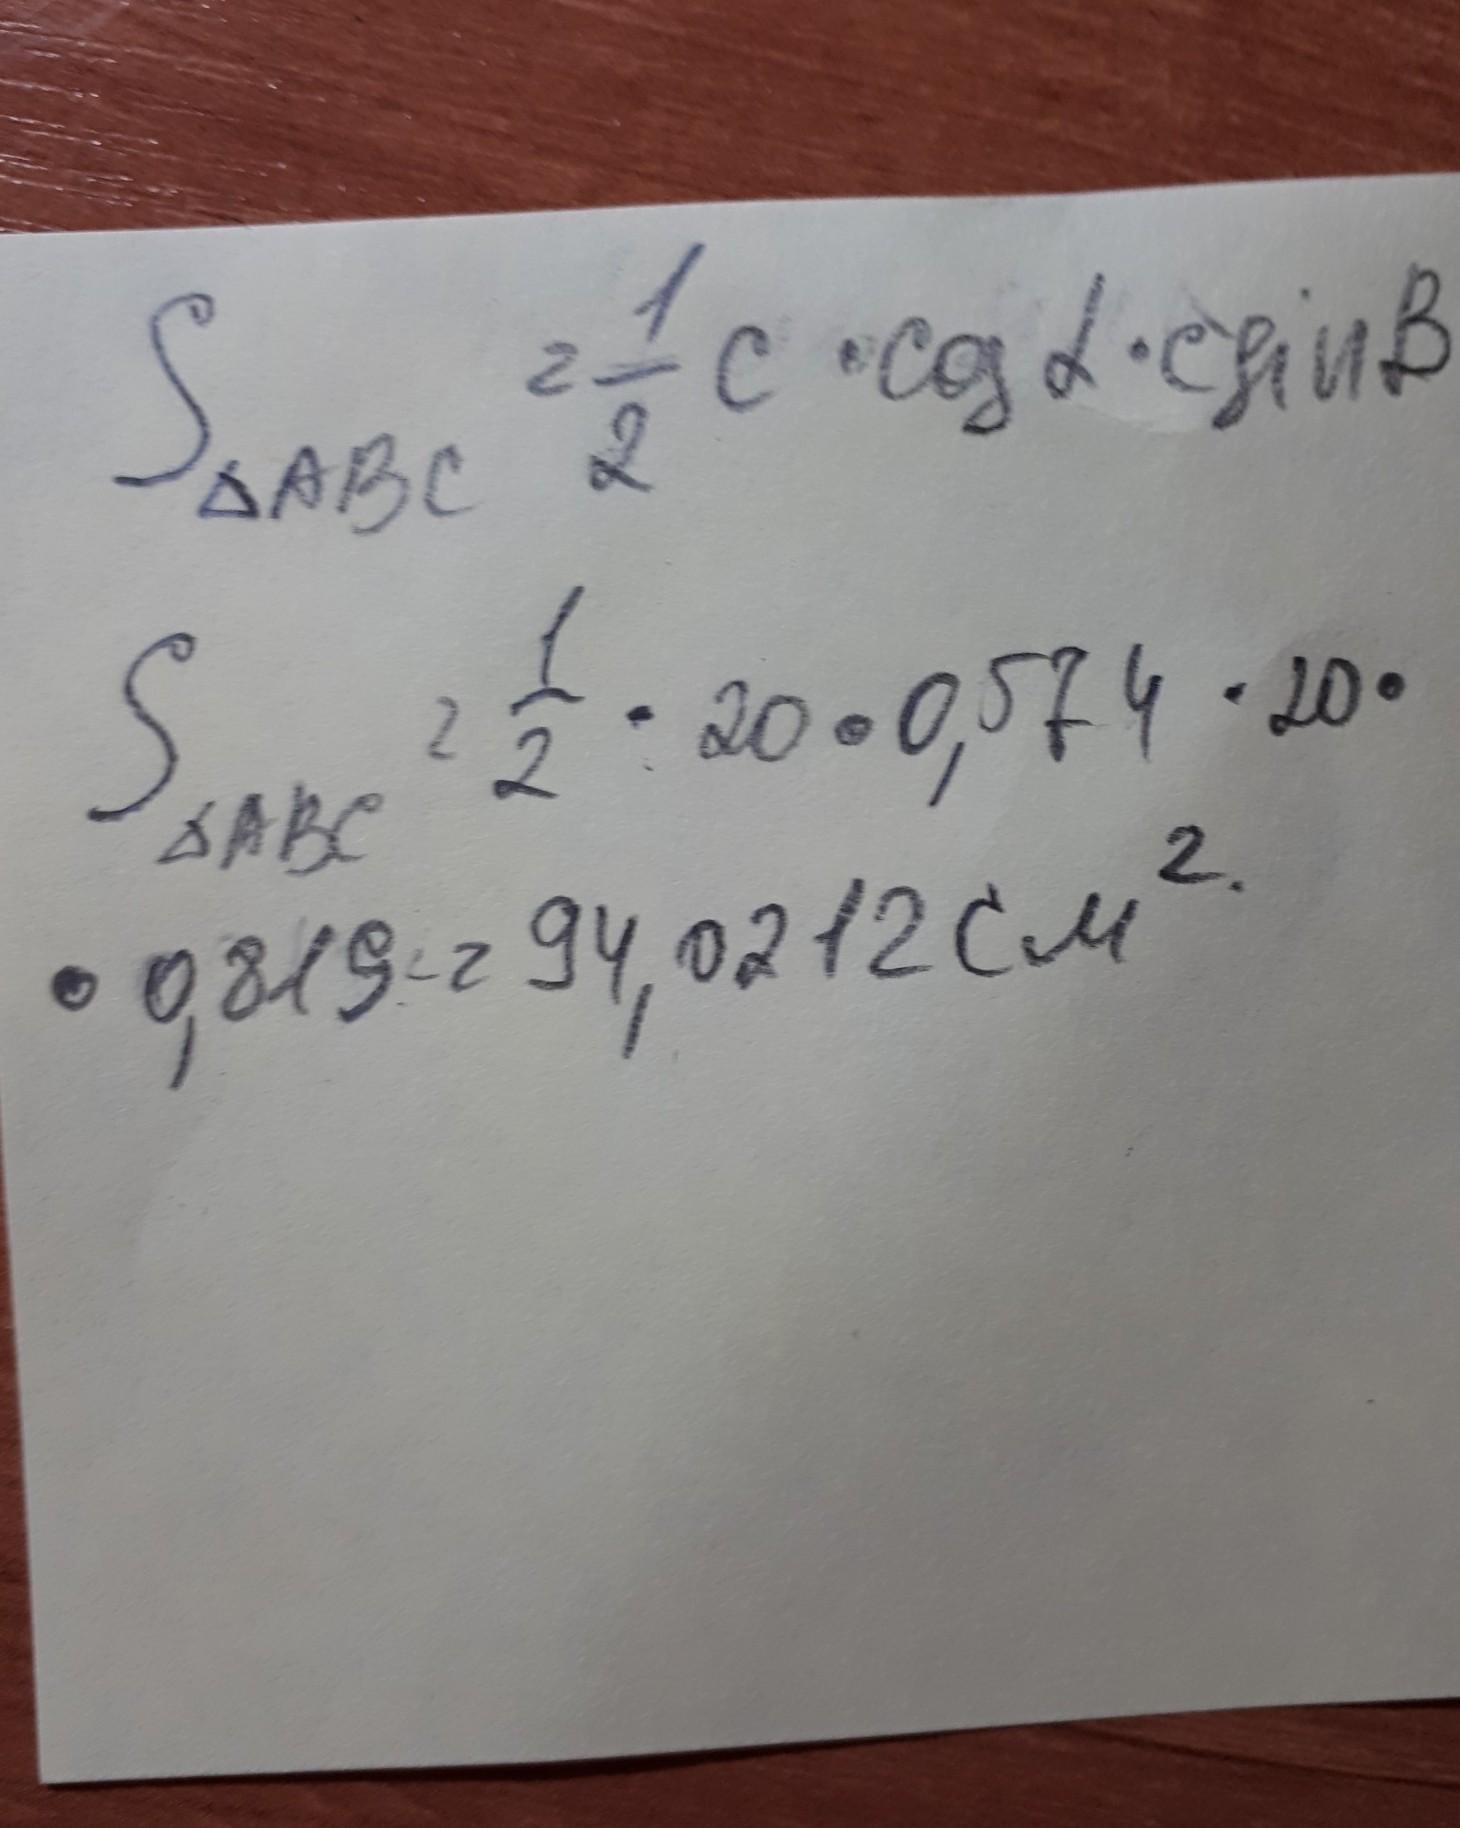 S△ABC = 1/2 c · cos α · c sin B
S△ABC = 1/2 · 20 · 0,574 · 20 ·
· 0,819 = 94,0212 см².